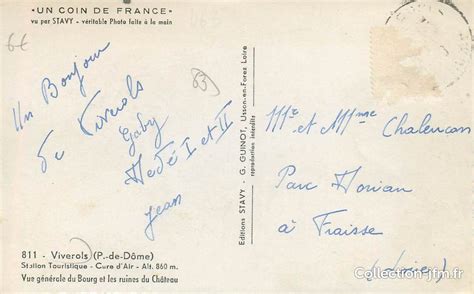 "UN COIN DE FRANCE"
vu par STAVY - véritable Photo faite à la main
6€
63
Un Bonjour
de Viverols
Gaby
Dédé I et II
Jean
811 - Viverols (P.-de-Dôme)
Station Touristique - Cure d'Air - Alt. 860 m.
Vue générale du Bourg et les ruines du Château
Editions STAVY - G. GUINOT, Usson-en-Forez Loire
reproduction interdite
Mr et Mme Chalencon
Parc
à Fraisse
(Loire)
Collection-jfm.fr